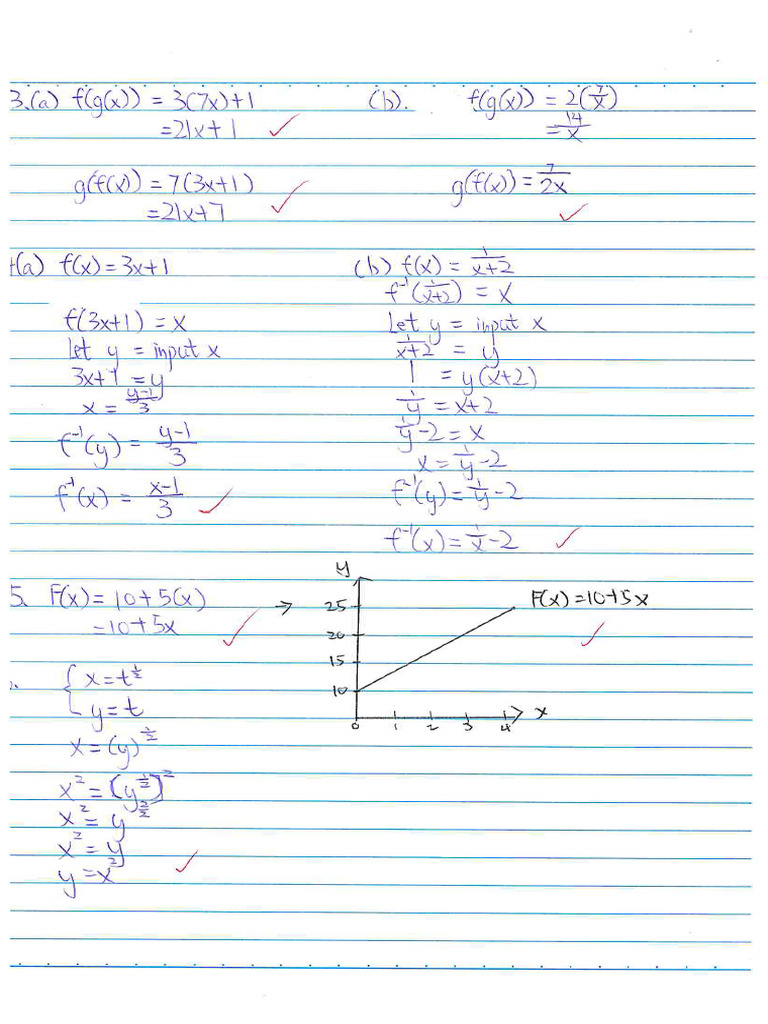 3.(a) f(g(x)) = 3(7x)+1
=21x+1 ✓
g(f(x)) = 7(3x+1)
=21x+7 ✓
(b). f(g(x)) = 2(7/x)
= 14/x
g(f(x)) = 7/2x
✓
(a) f(x) = 3x+1
f(3x+1) = x
let y = input x
3x+1 = y
x = y-1/3
f⁻¹(y) = y-1/3
f⁻¹(x) = x-1/3 ✓
(b) f(x) = 1/x+2
f⁻¹(1/x+2) = x
Let y = input x
1/x+2 = y
1 = y(x+2)
1/y = x+2
1/y-2 = x
x = 1/y-2
f⁻¹(y) = 1/y-2
f⁻¹(x) = 1/x-2 ✓
5. F(x) = 10+5(x)
=10+5x ✓
→
y
25
20
15
10
0 1 2 3 4
x
F(x)=10+5x
✓
{ x = t^½
y = t
x = (y)^½
x² = (y^½)²
x² = y^2/2
x² = y
y = x² ✓